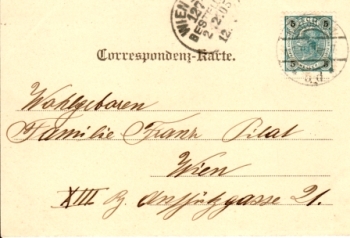 WIEN
127
BES
Correspondenz-Karte.
Wohlgeboren
Familie Franz Pilat
Wien
XIII Bz. Anschützgasse 21.